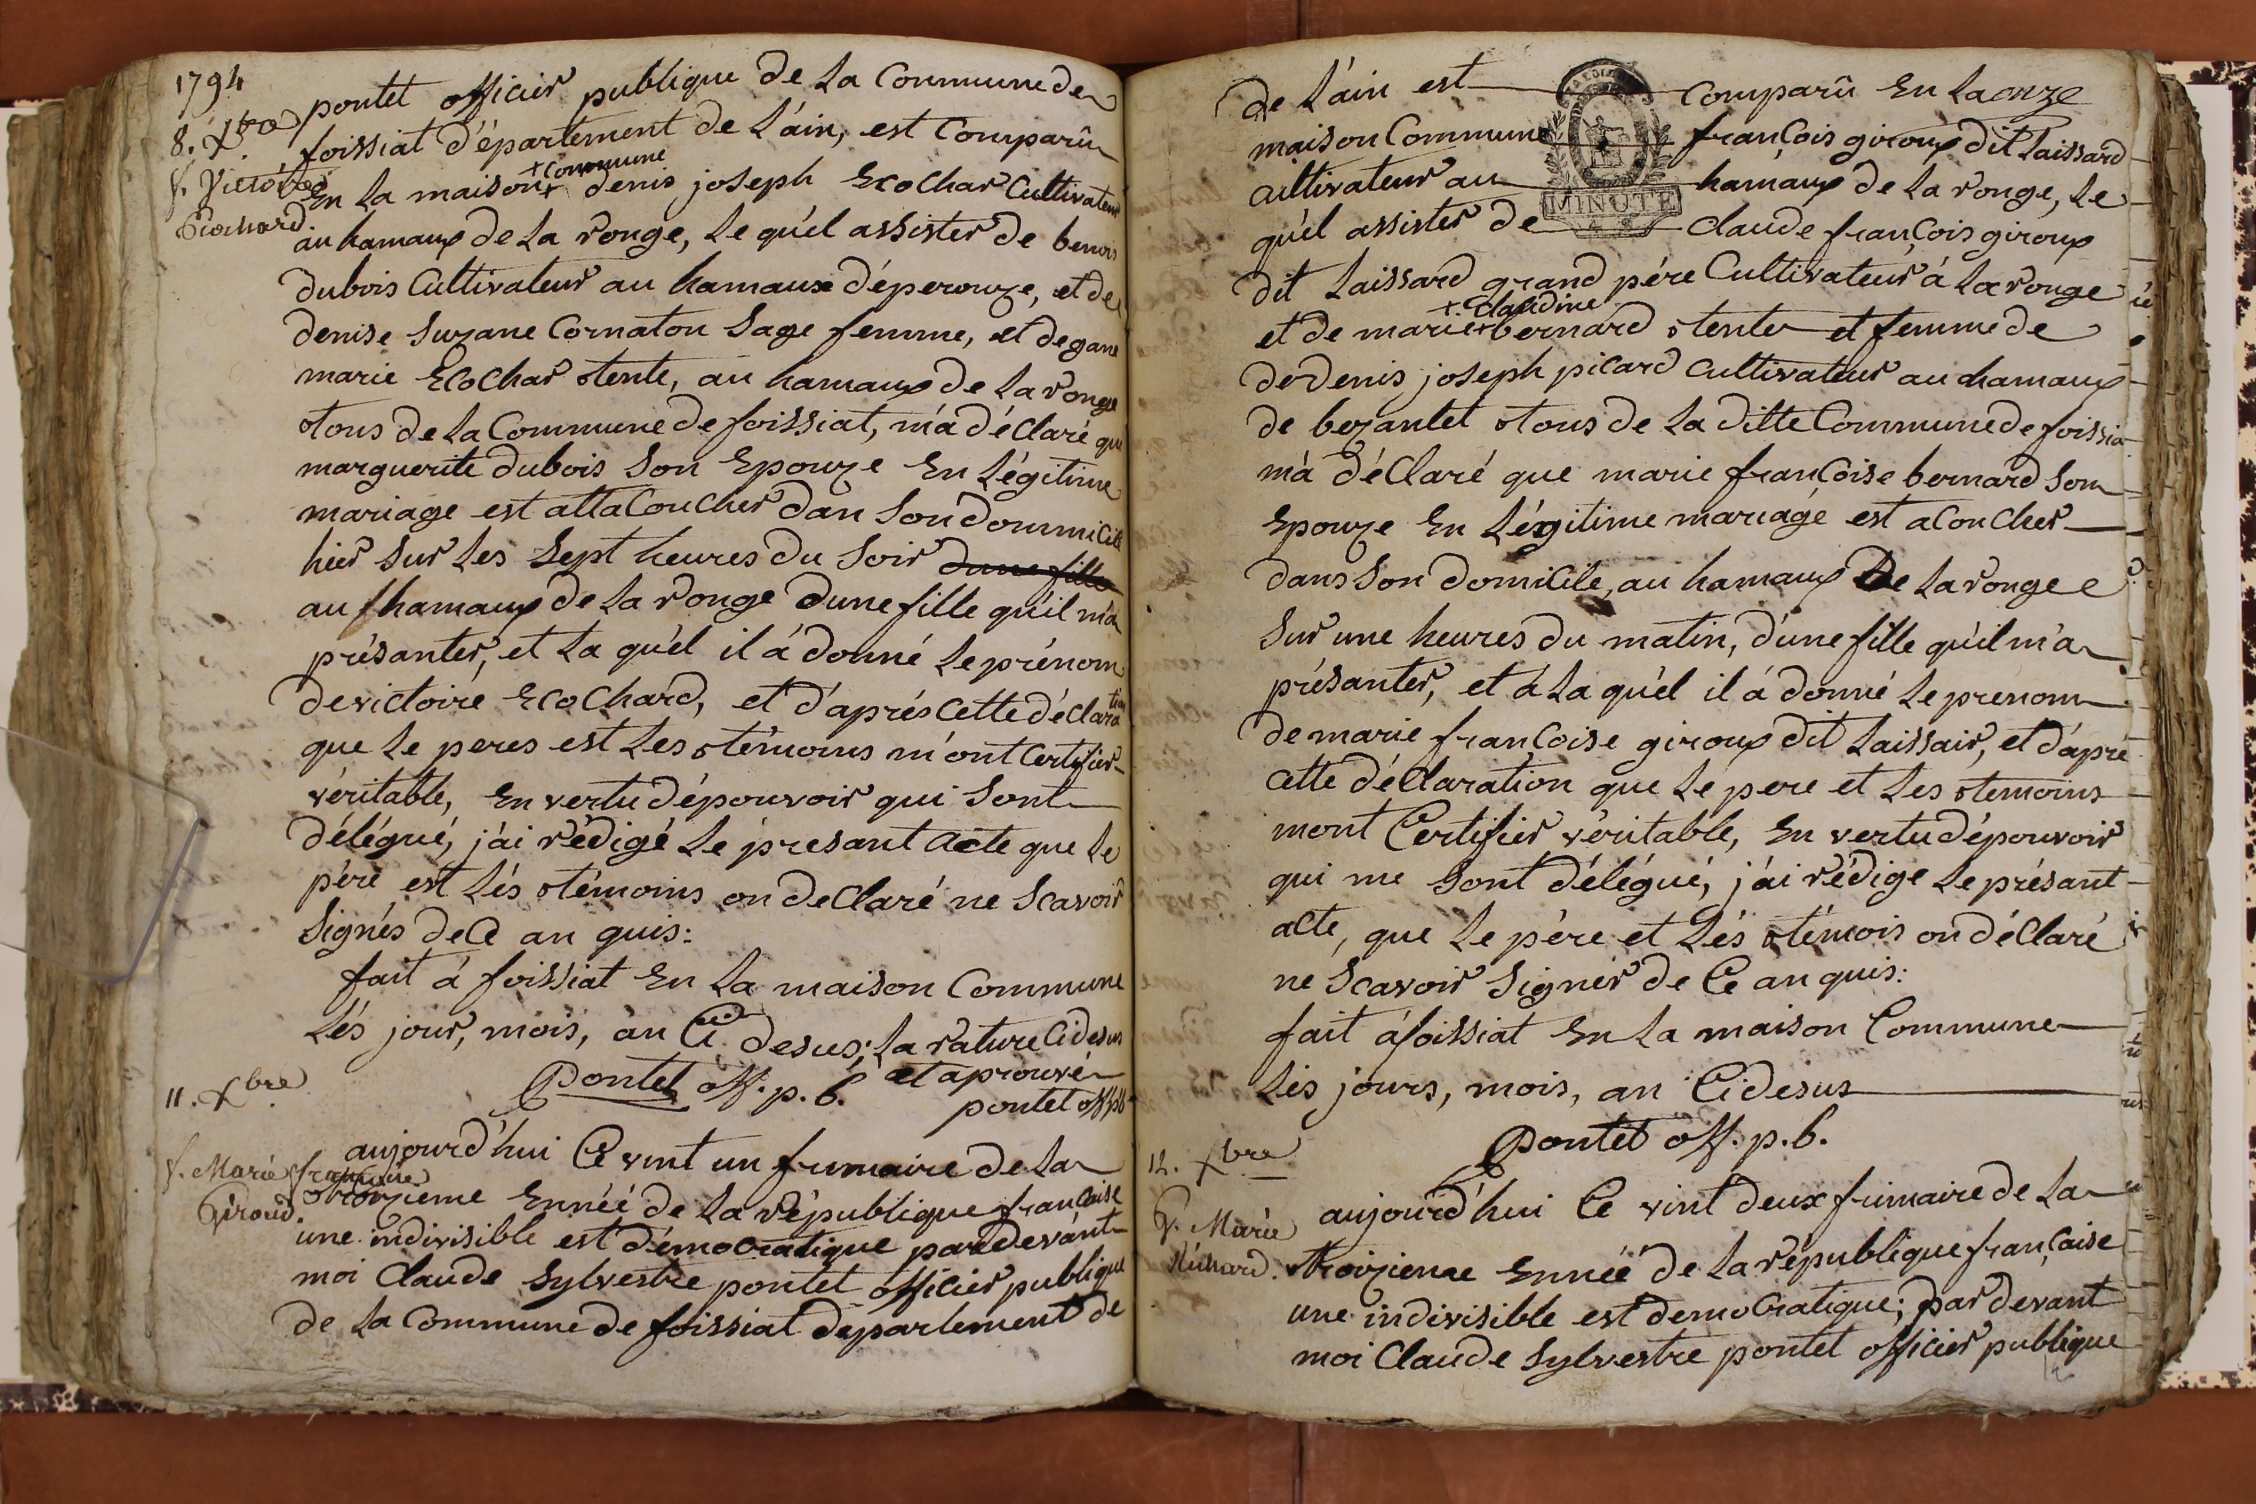 1794
8. Xbre
f. Victoire
Ecochard
pontet officier publique de La Commune de
foissiat d'épartement de L'ain, est Comparûu
+ Commune
En La maison + denis joseph EcoChar Cultivateur
au hamaux de La ronge, Le qu'el assister de benois
dubois Cultivateur au hamaux d'éperouze, et de
denise Suzane Cornaton Sage femme, et de gane
marie EcoChar tente, au hamaux de La ronge
tous de La Commune de foissiat, m'a d'éClaré que
marguerite dubois Son Epouze En Légitime
mariage est atta Coucher dan Son dommiCile
hier Sur Les Sept heures du Soir dune fille
au hamaux de La ronge dune fille qu'il m'a
présanter, et La qu'el il á donné Le prénom
de victoire EcoChard, et d'aprés Cette d'éClaration
que Le peres est Les témoins m'ont Certifier
véritable, En vertu d'épouvoir qui Sont
délégué, j'ai rédigé Le présant acte que Le
pére est Lés témoins on deClaré ne Scavoir
Signés de Ce an quis:
fait á foissiat En La maison Commune
Lés jour, mois, an Ci desus; La rature Cidesus
et aprouvé
Pontet off. p. b. pontet off pb
11. Xbre
f. Marie françoise
Giroud.
aujourd'hui Ce vint un frimaire de La
troizieme Ennéé de La république française
une indivisible est démocratique par devant
moi Claude Sylvestre pontet officier publique
de La Commune de foissiat departement de
de L'ain est Comparû En La onze
maison Commune françois giroux dit Laissard
Cultivateur au hamaux de La ronge, Le
qu'el assister de Claude françois giroux
MINUTE
dit Laissard grand pére Cultivateur á La ronge
+ Claudine
et de marie + bernard tente et femme de
de denis joseph picard Cultivateur au hamaux
de bezantet tous de La ditte Commune de foissia
m'a d'éClaré que marie françoise bernard Son
Epouze En Légitime mariage est aCoucher
dans Son domiCile, au hamaux de La ronge
Sur une heures du matin, d'une fille qu'il m'a
présanter, et á La qu'el il á donné Le prenom
de marie françoise giroux dit Laissair, et d'apré
Cette d'éClaration que Le pere et Les temoins
mont Certifier véritable, En vertu d'épouvoir
qui me Sont délégué, j'ai rédige Le présant
acte, que Le pére et Lés témois on d'éClaré
ne Scavoir Signer de Ce an quis:
fait á foissiat En La maison Commune
Lés jours, mois, an Cidesus
Pontet off. p. b.
12. Xbre
f. Marie
Richard.
aujourd'hui Ce vint deux frimaire de La
troizieme Ennéé de La république française
une indivisible est democratique; par devant
moi Claude Sylvestre pontet officier publique